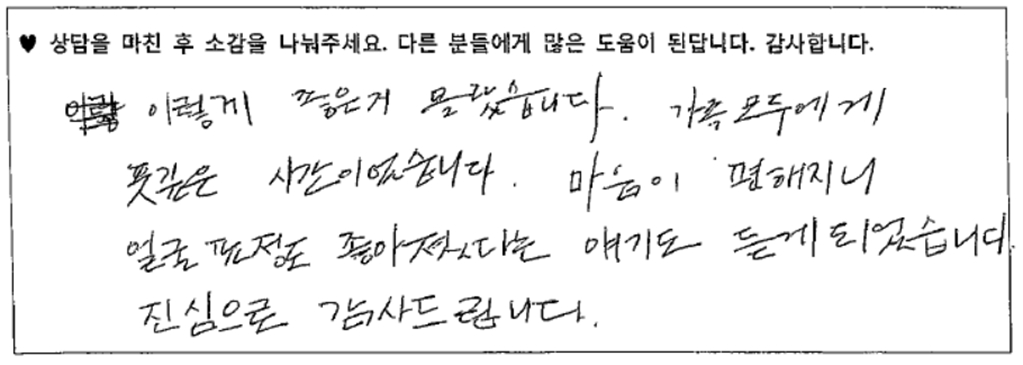 ♥ 상담을 마친 후 소감을 나눠주세요. 다른 분들에게 많은 도움이 된답니다. 감사합니다.
이렇게 좋은거 몰랐습니다. 가족모두에게
뜻깊은 시간이었습니다. 마음이 편해지니
얼굴표정도 좋아졌다는 얘기도 듣게되었습니다
진심으로 감사드립니다.